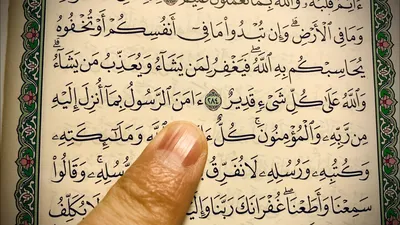 ءَاثِمٌ قَلْبُهُۥ وَٱللَّهُ بِمَا تَعْمَلُونَ
وَمَا فِى ٱلْأَرْضِ ۗ وَإِن تُبْدُوا۟ مَا فِىٓ أَنفُسِكُمْ أَوْ تُخْفُوهُ
يُحَاسِبْكُم بِهِ ٱللَّهُ ۖ فَيَغْفِرُ لِمَن يَشَآءُ وَيُعَذِّبُ مَن يَشَآءُ ۗ
وَٱللَّهُ عَلَىٰ كُلِّ شَىْءٍ قَدِيرٌ ٢٨٤ ءَامَنَ ٱلرَّسُولُ بِمَآ أُنزِلَ إِلَيْهِ
مِن رَّبِّهِۦ وَٱلْمُؤْمِنُونَ ۚ كُلٌّ وَمَلَـٰٓئِكَتِهِۦ
وَكُتُبِهِۦ وَرُسُلِهِۦ لَا نُفَرِّقُ رُّسُلِهِۦ ۚ وَقَالُوا۟
سَمِعْنَا وَأَطَعْنَا ۖ غُفْرَانَكَ رَبَّنَا لَا يُكَلِّفُ